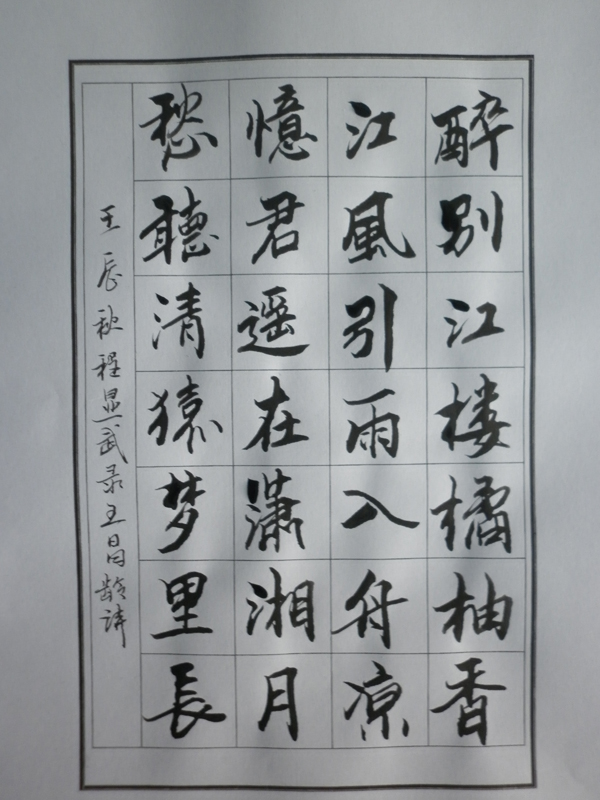 醉别江楼橘柚香
江風引雨入舟凉
憶君遥在瀟湘月
愁聽清猿梦里長
壬辰秋程显武录王昌龄诗